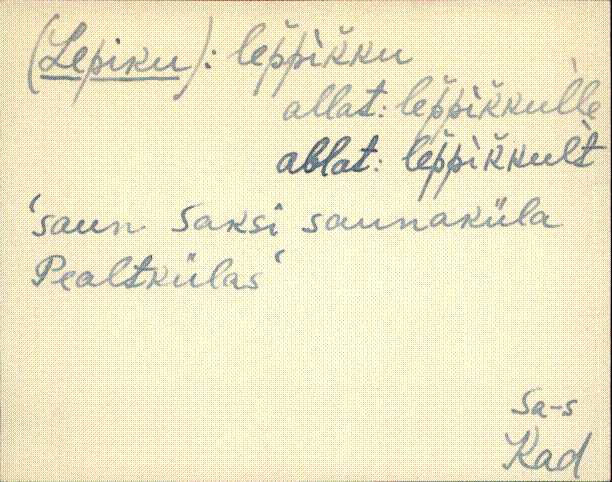 (Lepiku): lep̆p̀ik̆ku
allat: lep̆p̀ik̆kul̀le
ablat: lep̆p̀ik̆kul̀t
'saun Saksi saunaküla
Pealtkülas'
Sa-s
Kad